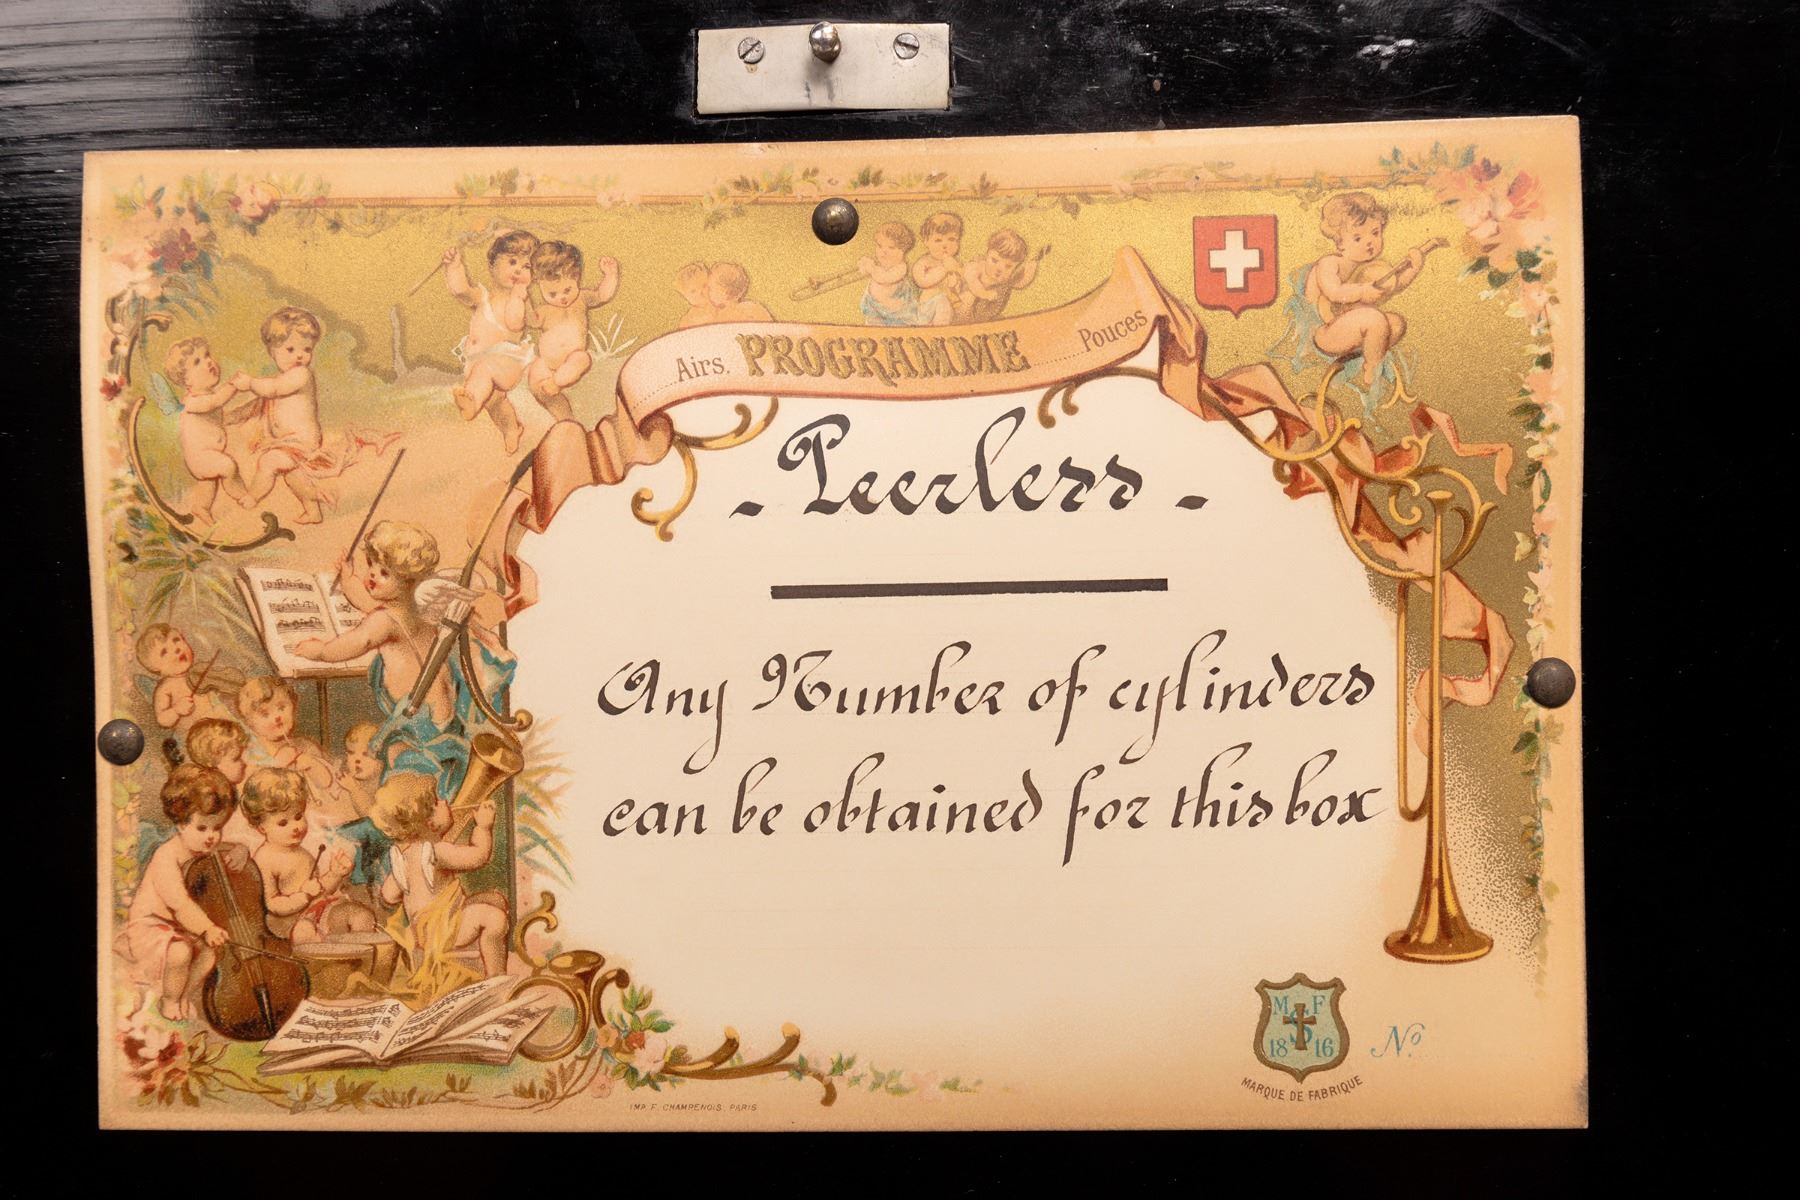 Airs. PROGRAMME Pouces
- Peerless -
Any Number of cylinders
can be obtained for this box
M F
S
18 16
Nº
MARQUE DE FABRIQUE
IMP. F. CHAMPENOIS, PARIS